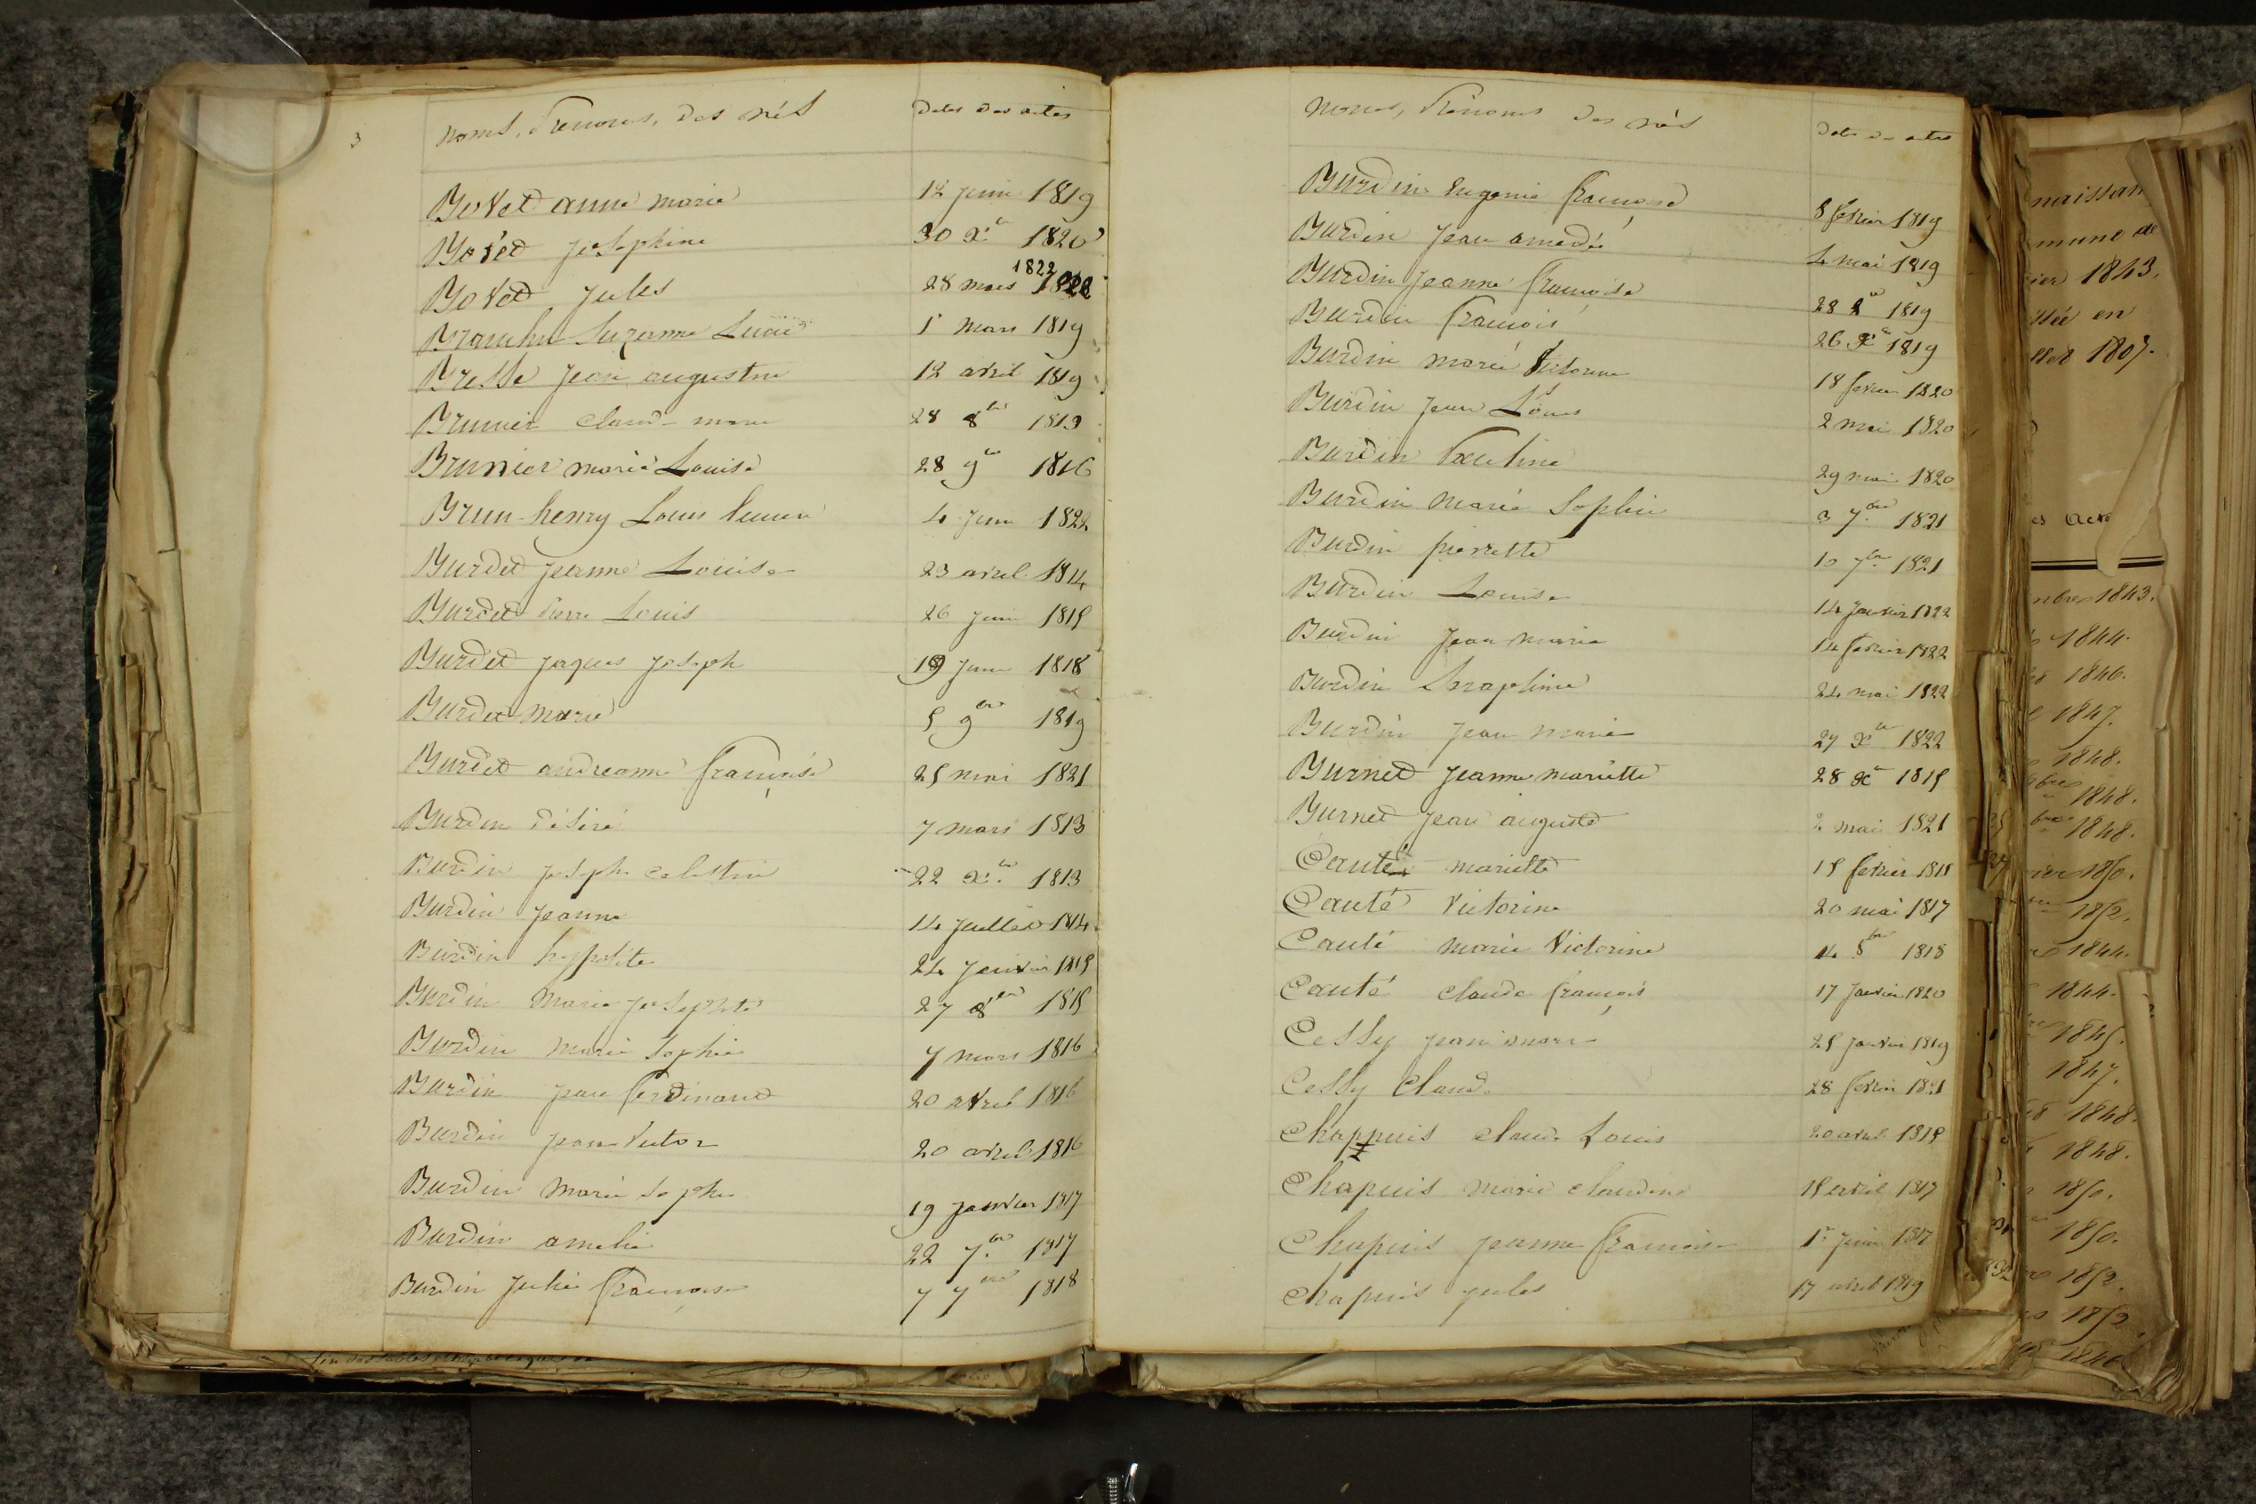 3
noms, Prenoms, des nés Dates des actes
Bovet anne marie 12 juin 1819
Bovet josephine 30 Xbre 1820
Bovet jules 28 mars 1822
Suzanne 1r mars 1819
Bresse jean augustin 12 avril 1819
Brunier claud marie 28 8bre 1813
Brunier marie Louise 28 9bre 1816
Brun henry Louis 4 juin 1822
Burdet jeanne Louise 23 avril 1814
Burdet Pierre Louis 26 juin 1815
Burdet jaques joseph 19 juin 1818
Burdet marie 5 9bre 1819
Burdet andreanne françoise 25 mai 1821
Burdin désiré 7 mars 1813
Burdin joseph celestin 22 Xbre 1813
Burdin jeanne 14 juillet 1814
Burdin hypolite 24 janvier 1815
Burdin marie josephte 27 8bre 1815
Burdin marie Sophie 7 mars 1816
Burdin jean ferdinand 20 avril 1816
Burdin jean Victor 20 avril 1816
Burdin marie sophie 19 janvier 1817
Burdin amelie 22 7bre 1817
Burdin julie françoise 7 7bre 1818
noms, Prénoms des nés Date des actes
Burdin Eugenie françoise 8 fevrier 1819
Burdin jean amedé 4 mai 1819
Burdin jeanne françoise 28 1819
Burdin françois 26 Xbre 1819
Burdin marie Victorine 18 fevrier 1820
Burdin jean Louis 2 mai 1820
Burdin Pauline 29 mai 1820
Burdin marie Sophie 3 7bre 1821
Burdin pierrette 10 7bre 1821
Burdin Louise 14 janvier 1822
Burdin jean marie 14 fevrier 1822
Burdin Seraphine 24 mai 1822
Burdin jean marie 27 Xbre 1822
Burnet jeanne mariette 28 Xbre 1815
Burnet jean auguste 2 mai 1821
Cauté mariette 15 fevrier 1815
Cauté Victorine 20 mai 1817
Cauté marie Victorine 14 8bre 1818
Cauté claude françois 17 janvier 1820
Cessy jean marie 25 janvier 1819
Cessy Claud 28 fevrier 1821
Chappuis claude Louis 20 avril 1815
Chapuis marie claudine 15 avril 1817
Chapuis jeanne françoise 1r juin 1817
Chapuis jules 17 avril 1819
naissan
mune de
1843.
en
1807.
1843.
1844.
1846.
1847.
1848.
1848.
1848.
1850.
1852.
1844.
1844.
1845.
1847.
1848.
1848.
1850.
1850.
1852.
1852.